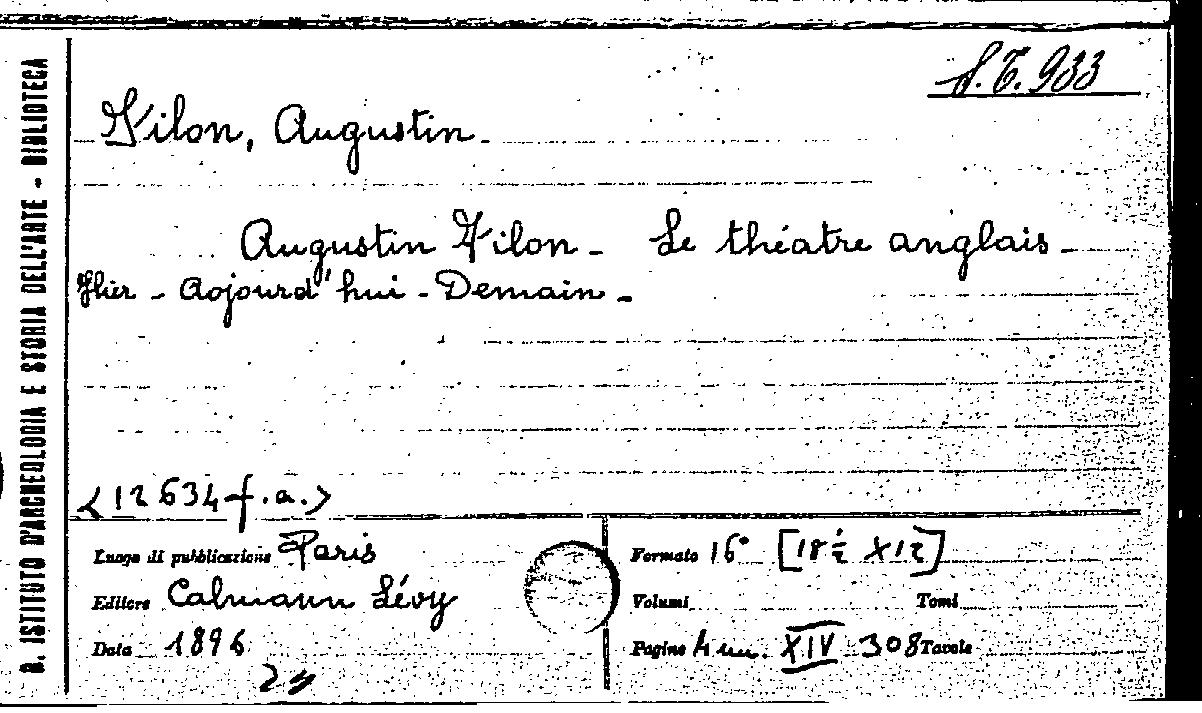 S.T.933
R. ISTITUTO D'ARCHEOLOGIA E STORIA DELL'ARTE - BIBLIOTECA
Filon, Augustin.
Augustin Filon - Le théatre anglais -
Hier - Aojourd'hui - Demain -
<12634 f.a.>
Luogo di pubblicazione Paris
Editore Calmann Lévy
Data 1896
Formato 16° [18½ X 12]
Volumi Tomi
Pagine XIV 308 Tavole